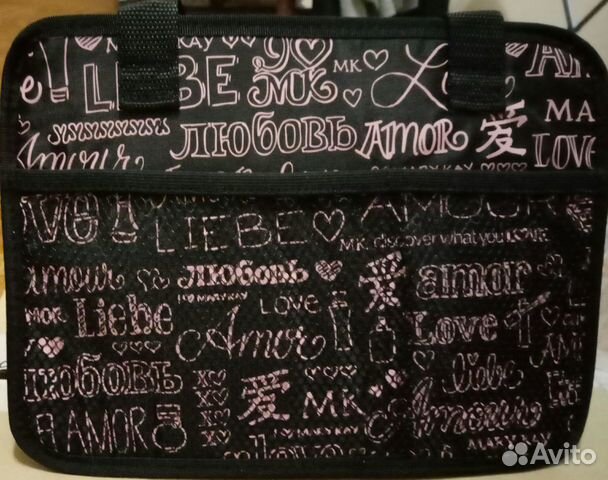 MARY KAY
LIEBE
MK
AMOR
ЛЮБОВЬ
AMOR
爱
MA
LOVE
Amour
MARY KAY
LIEBE
AMOUR
MK discover what you LOVE
amour
любовь
amor
I ♥ MARY KAY
LOVE
MOR
Liebe
Amor
Love
любовь
liebe
AMOR
爱
MK
Amour
I ♥ MARY KAY
MARY
Avito